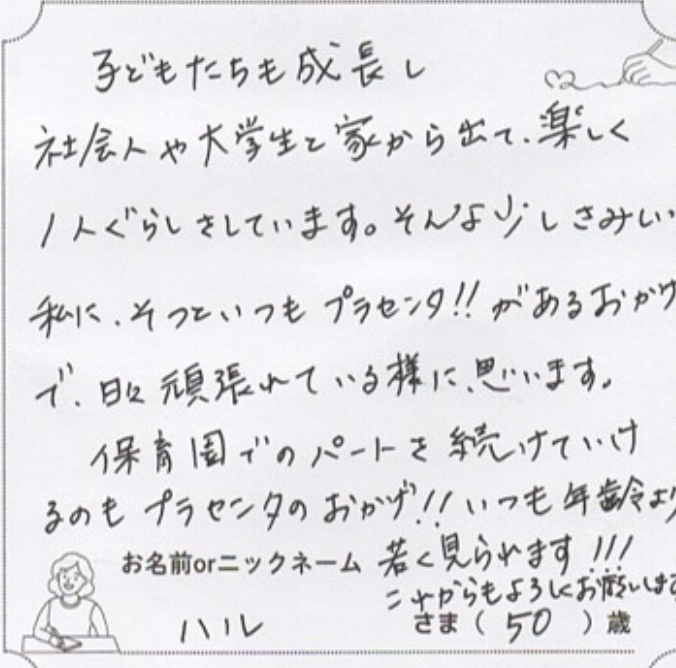 子どもたちも成長し
社会人や大学生と家から出て、楽しく
1人ぐらしをしています。そんな少しさみしい
私に、そっといつもプラセンタ!!があるおかげ
で、日々頑張れている様に、思います。
保育園でのパートを続けていけ
るのもプラセンタのおかげ!!いつも年齢より
若く見られます!!!
これからもよろしくお願いします
お名前orニックネーム
ハル さま ( 50 ) 歳